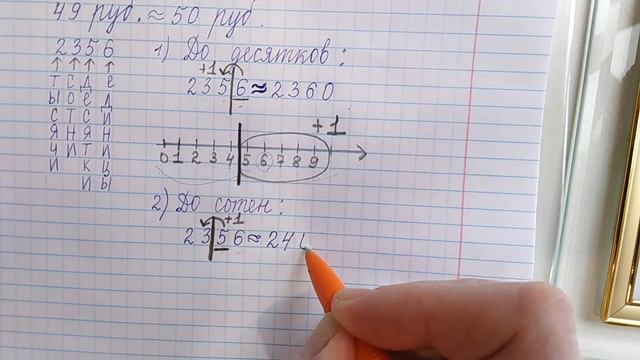 49 руб. ≈ 50 руб.
2356
тысячи
сотни
десятки
единицы
1) До десятков:
+1
2356 ≈ 2360
+1
0 1 2 3 4 5 6 7 8 9
2) До сотен:
+1
2356 ≈ 24